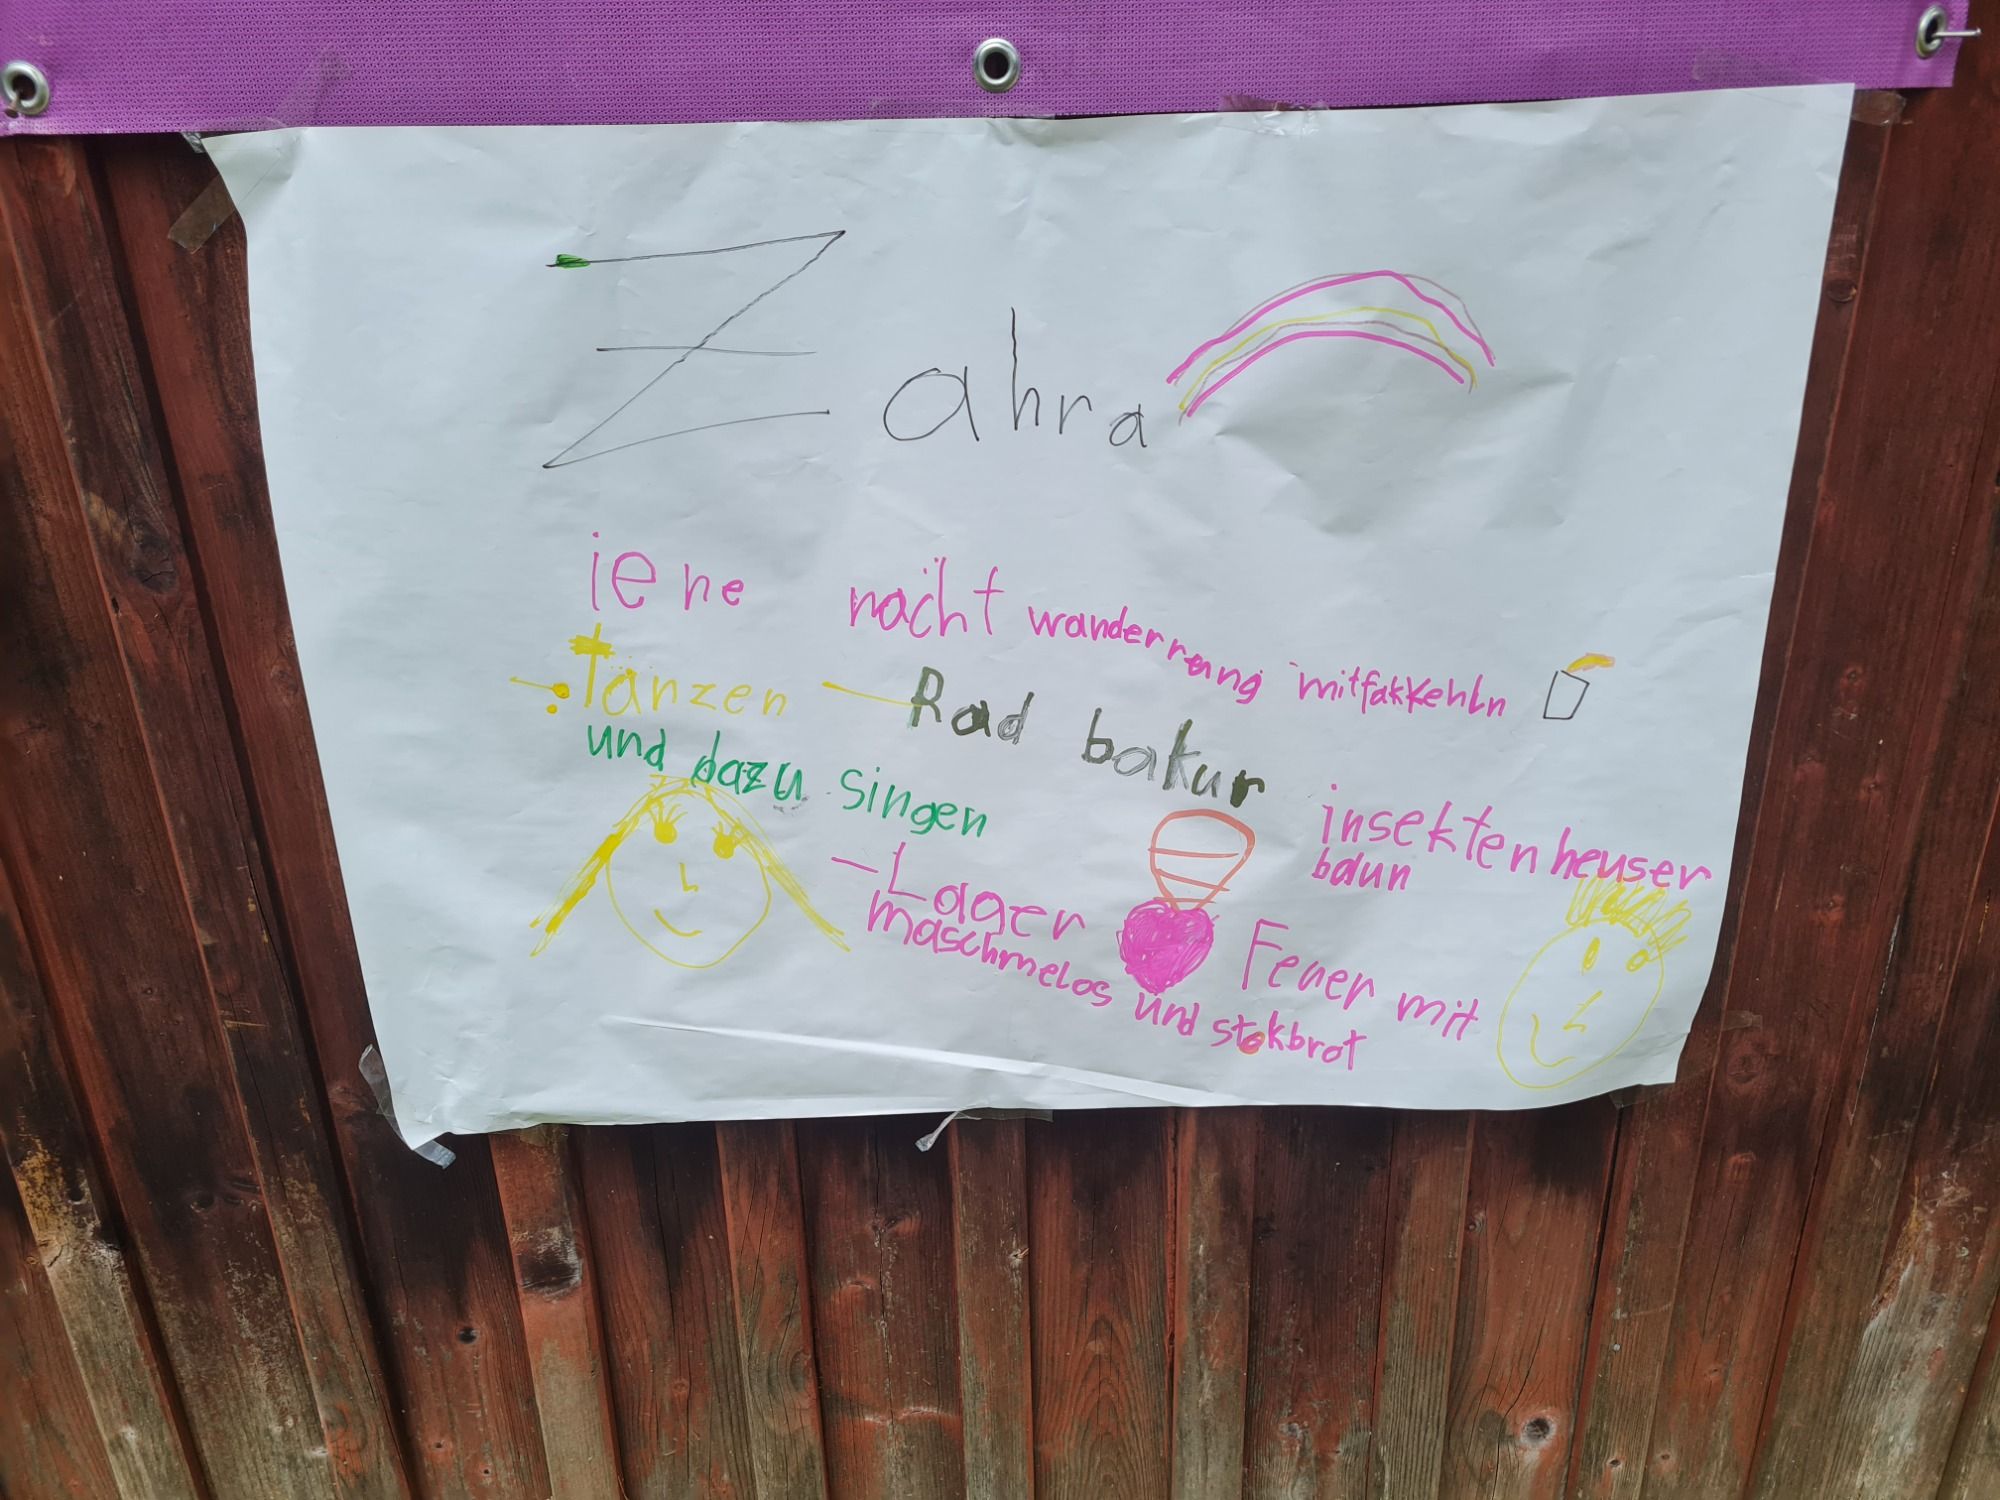 Zahra
iene nacht wanderrung mitfakkehln
- Tanzen - Rad bakur
und dazu singen
insektenheuser
baun
- Lager Feuer mit
maschmelos und stokbrot